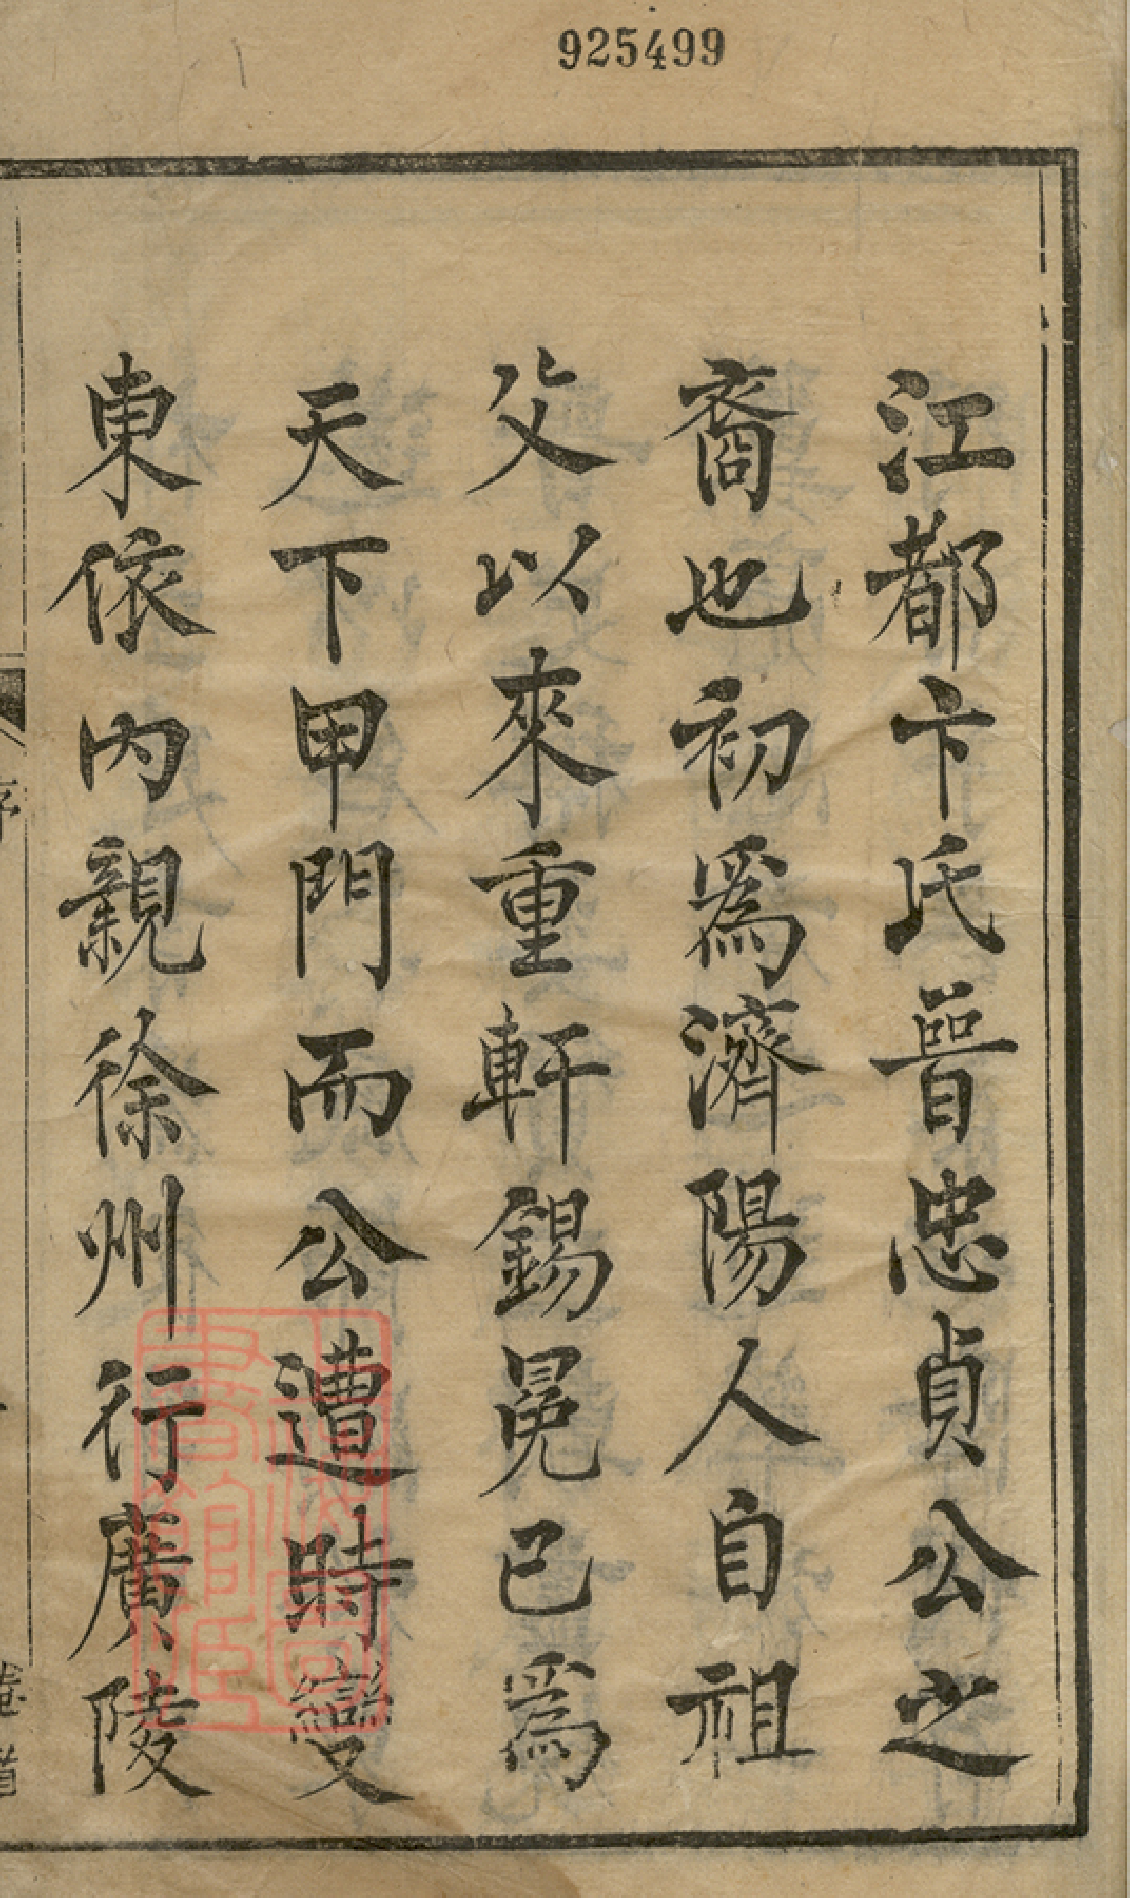 925499
江都卞氏晉忠貞公之
裔也初爲濟陽人自祖
父以來重軒錫冕已爲
天下甲門而公遭時變
東依内親徐州行廣陵
序